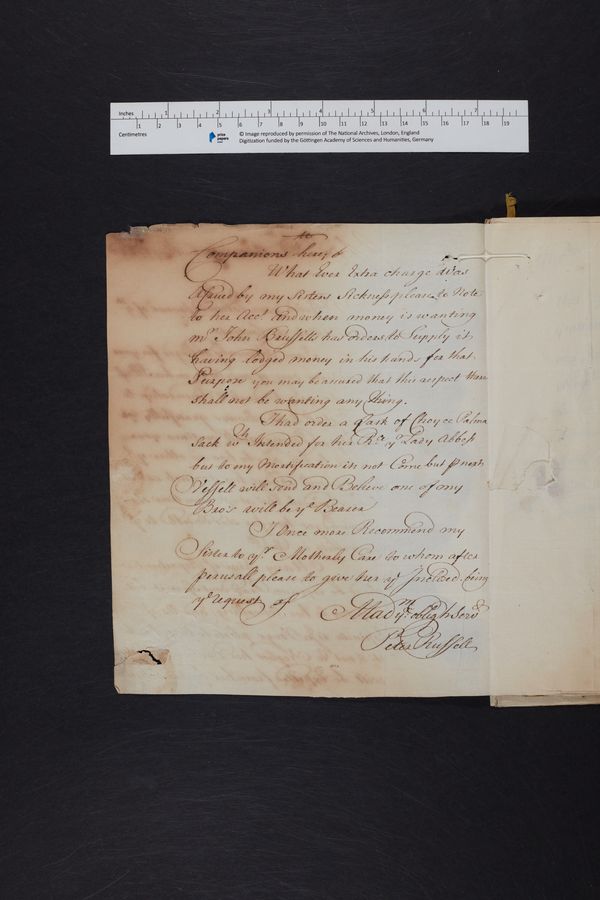 Inches 1 2 3 4 5 6 7
1 2 3 4 5 6 7 8 9 10 11 12 13 14 15 16 17 18 19
Centimetres
prize papers
© Image reproduced by permission of The National Archives, London, England
Digitization funded by the Göttingen Academy of Sciences and Humanities, Germany
Companions
What Ever Extra charge was
by my Sisters Sickness please to Note
to her Acct. and when money is wanting
mr. John Brussells has orders to Supply it
having lodged money in his hands for that
Purpose you may be assured that this respect there
shall not be wanting any thing.
I had order a Cask of Choyce Palma
Sack wch Intended for her Rce. ye Lady Abbess
but to my Mortification its not Come but p next
Vessell will send and Believe one of my
Bro:s will be ye Bearer
I Once more Recommend my
Sister to yr. Motherly Care to whom after
perusall please to give her ye Inclosed being
ye request of
Madm
yr. obligd Servt
Peter Russell